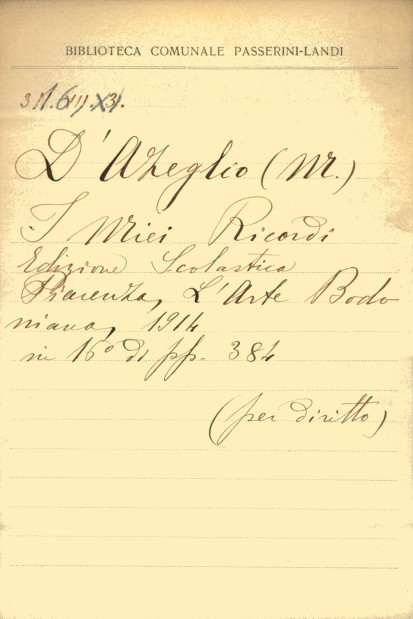 BIBLIOTECA COMUNALE PASSERINI-LANDI
D'Azeglio (M.)
I Miei Ricordi
Edizione Scolastica
Piacenza, L'Arte Bodo
niana, 1914
in 16° di pp. 384
(per diritto)